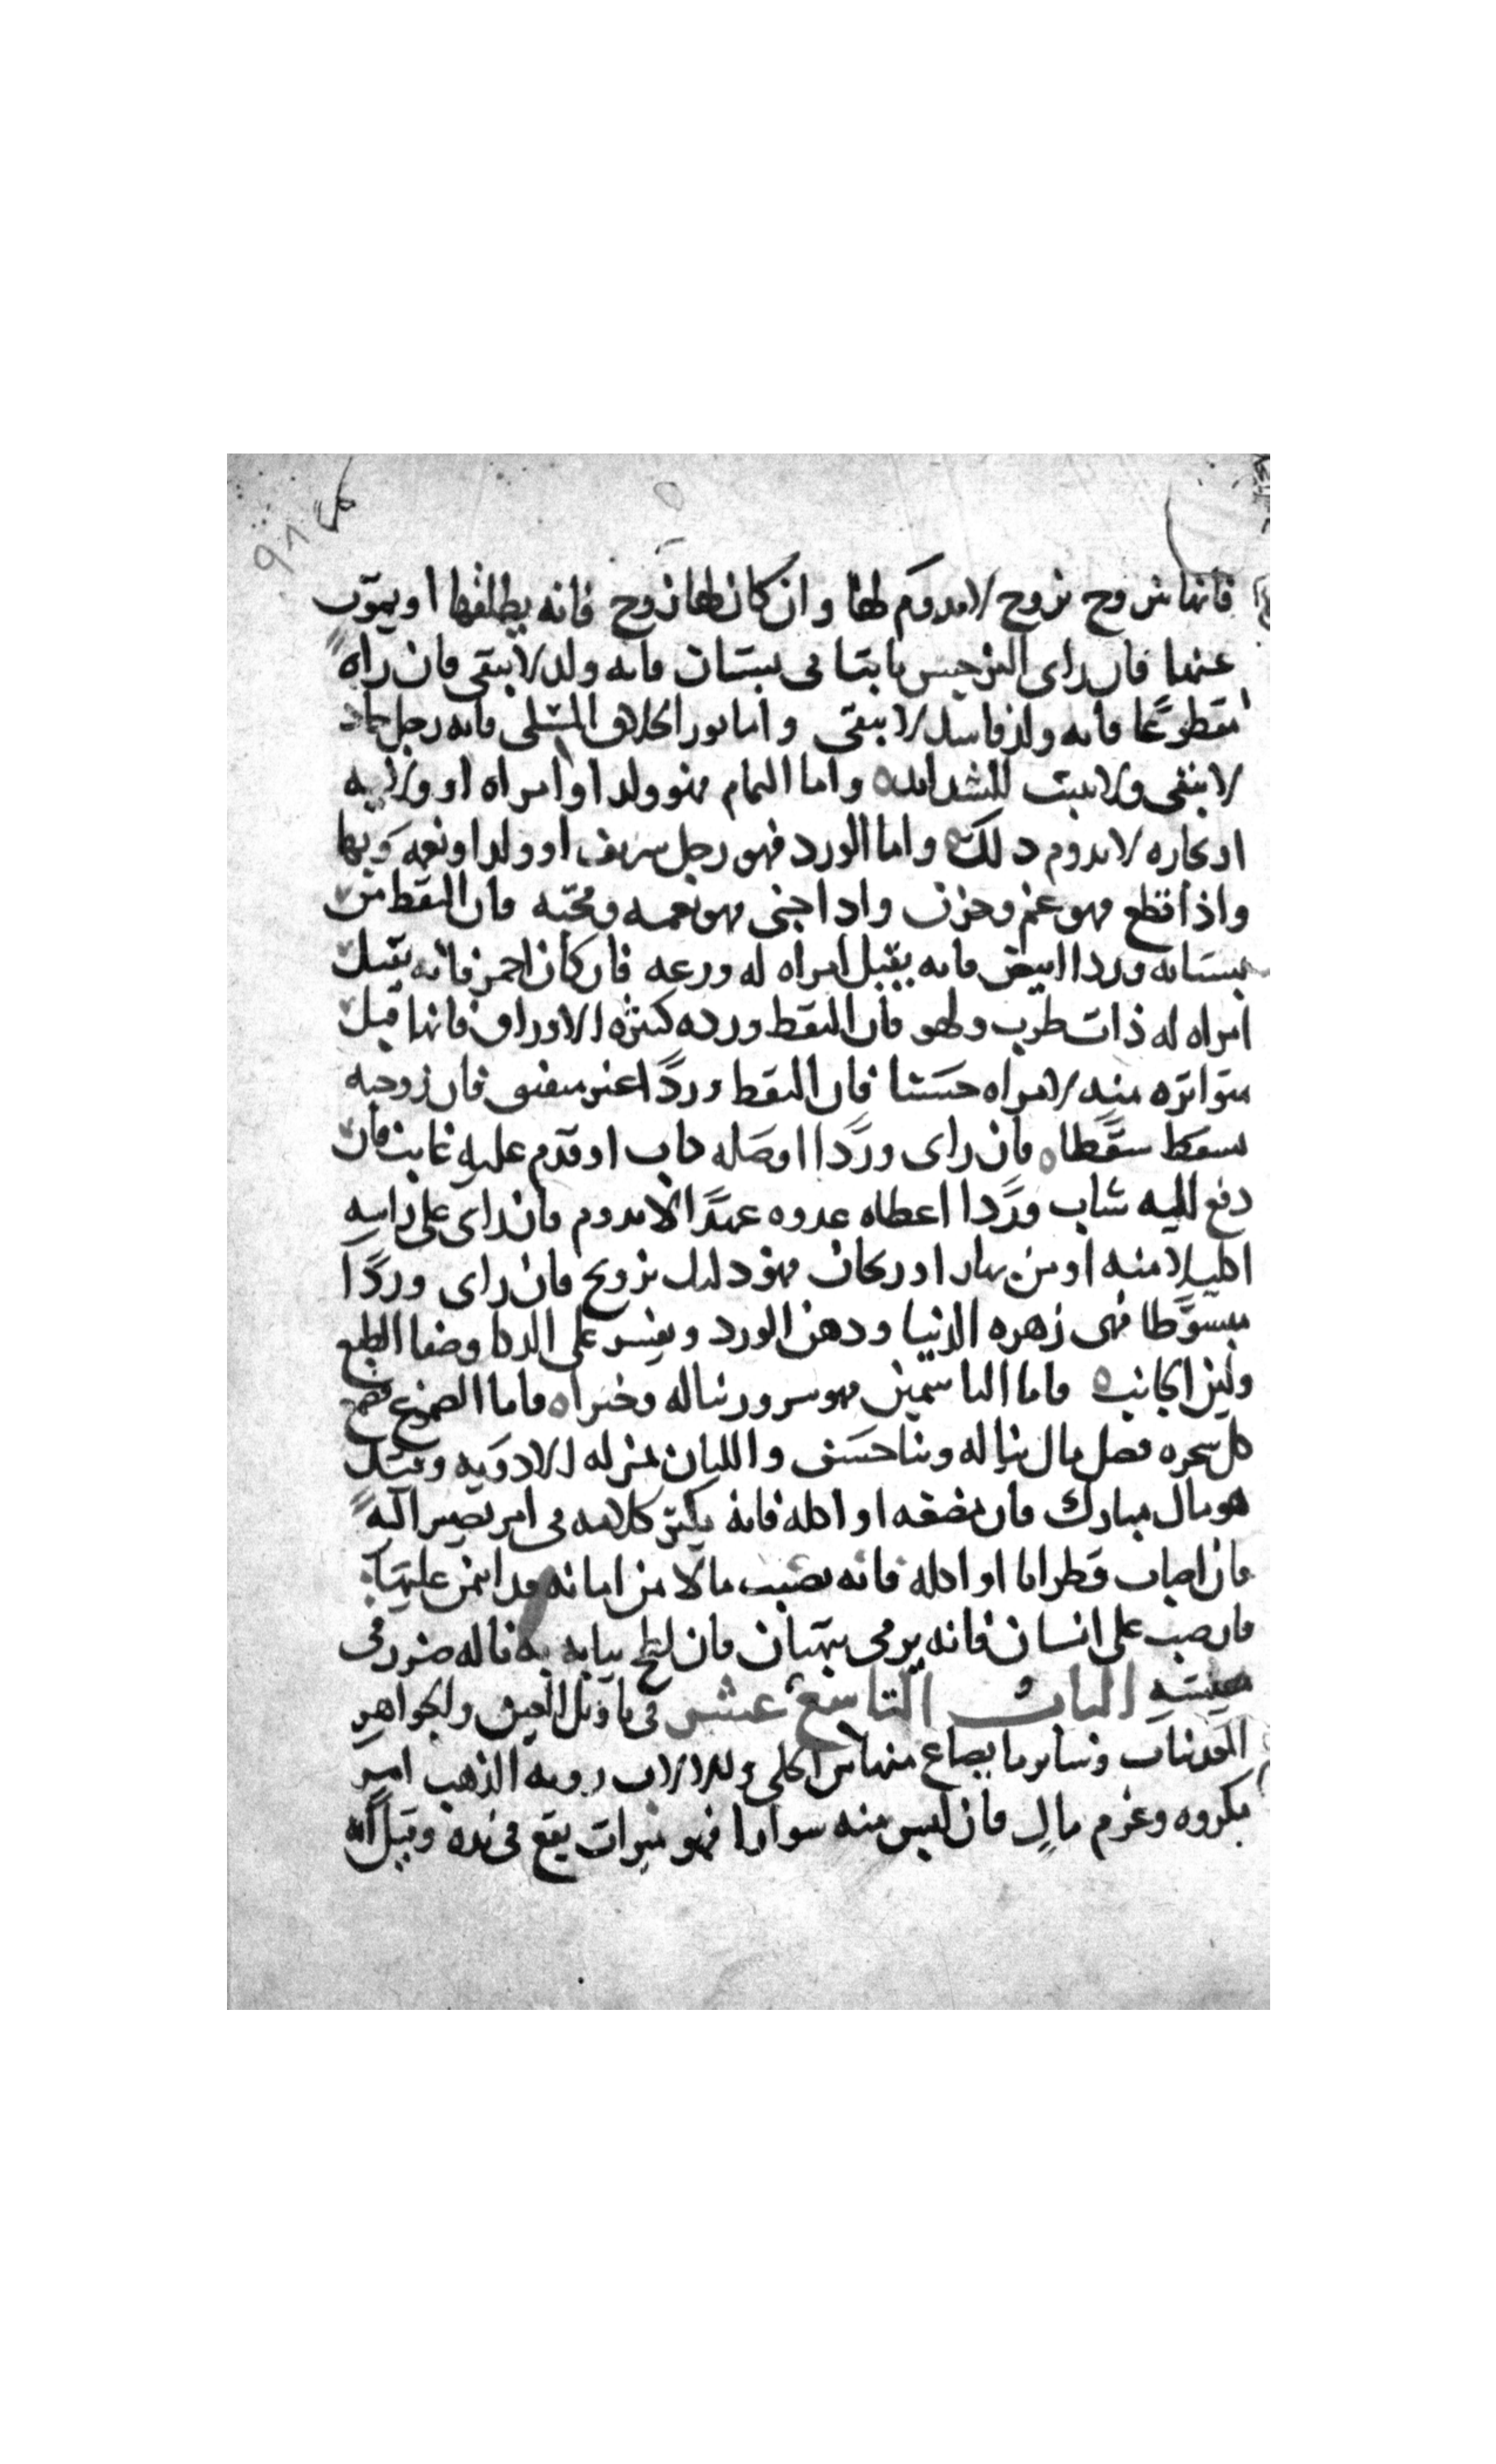 ٩٨
فانها تتزوج بزوج لا يدوم لها وان كان لها زوج فانه يطلقها او يموت
عنها فان راى النرجس نابتا فى بستان فانه ولد لا يبقى فان راه
مقطوعًا فانه ولد فاسد لا يبقى واما نور الخلاف فانه رجل
لا يبقى ولا يثبت للشدايد واما النمام فهو ولد او امراه او ولايه
او تجاره لا يدوم ذلك واما الورد فهو رجل شريف او ولد او نعمه وبها
واذا قطع فهو غم وحزن واذا جنى فهو نعمه ومحبه فان التقط من
بستانه وردا ابيض فانه يقبل امراه له ورعه فان كان احمر فانه يقبل
امراه له ذات طرب ولهو فان التقط ورده كثيره الاوراق فانها قبل
متواتره منه لامراه حسنا فان التقط وردًا غير فان زوجته
تسقط سقطا فان راى وردًا اوصله او قدم عليه غايب فان
دفع اليه شاب وردًا اعطاه عدوه عهدًا لا يدوم فان راى على راسه
اكليلا منه او من بهار او ريحان فهو دليل تزويج فان راى وردًا
مبسوطا فهى زهره الدنيا ودهن الورد ويفسر على الذكا وصفا الطبع
ولين الجانب فاما الياسمين فهو سرور يناله وخير فاما الصموغ فصمغ
كل شجره فضل مال يناله وثنا حسن واللبان بمنزله الادويه وقيل
هو مال مبارك فان مضغه او اكله فانه يكثر كلامه فى امر يصير اليه
فان اصاب قطرانا او اكله فانه يصيب مالا من امانه قد ايتمن عليها
فان صب على انسان فانه يرمى ببهتان فان لطخ ثيابه به ناله ضرر فى
معيشته الباب التاسع عشر فى تاويل العين والجواهر
المعدنيات وساير ما يصاغ منها من الحلى رويه الذهب امر
مكروه وغرم مال فان لبس منه سوارا فهو ميراث يقع فى يده وقيل انه